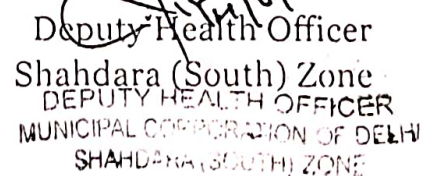 Deputy Health Officer
Shahdara (South) Zone
DEPUTY HEALTH OFFICER
MUNICIPAL CORPORATION OF DELHI
SHAHDARA (SOUTH) ZONE